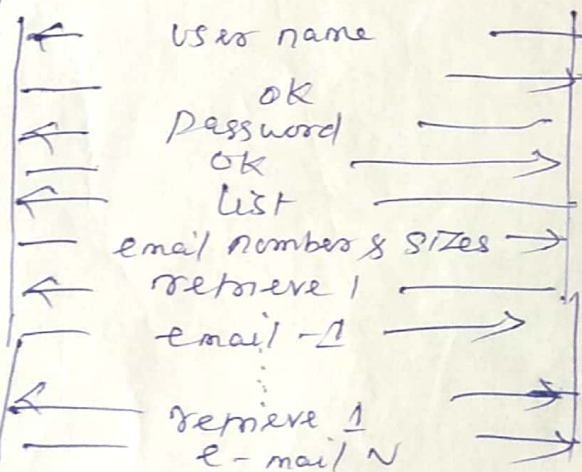 user name
ok
password
ok
list
email number & sizes
retrieve 1
email - 1
retrieve 1
e-mail N